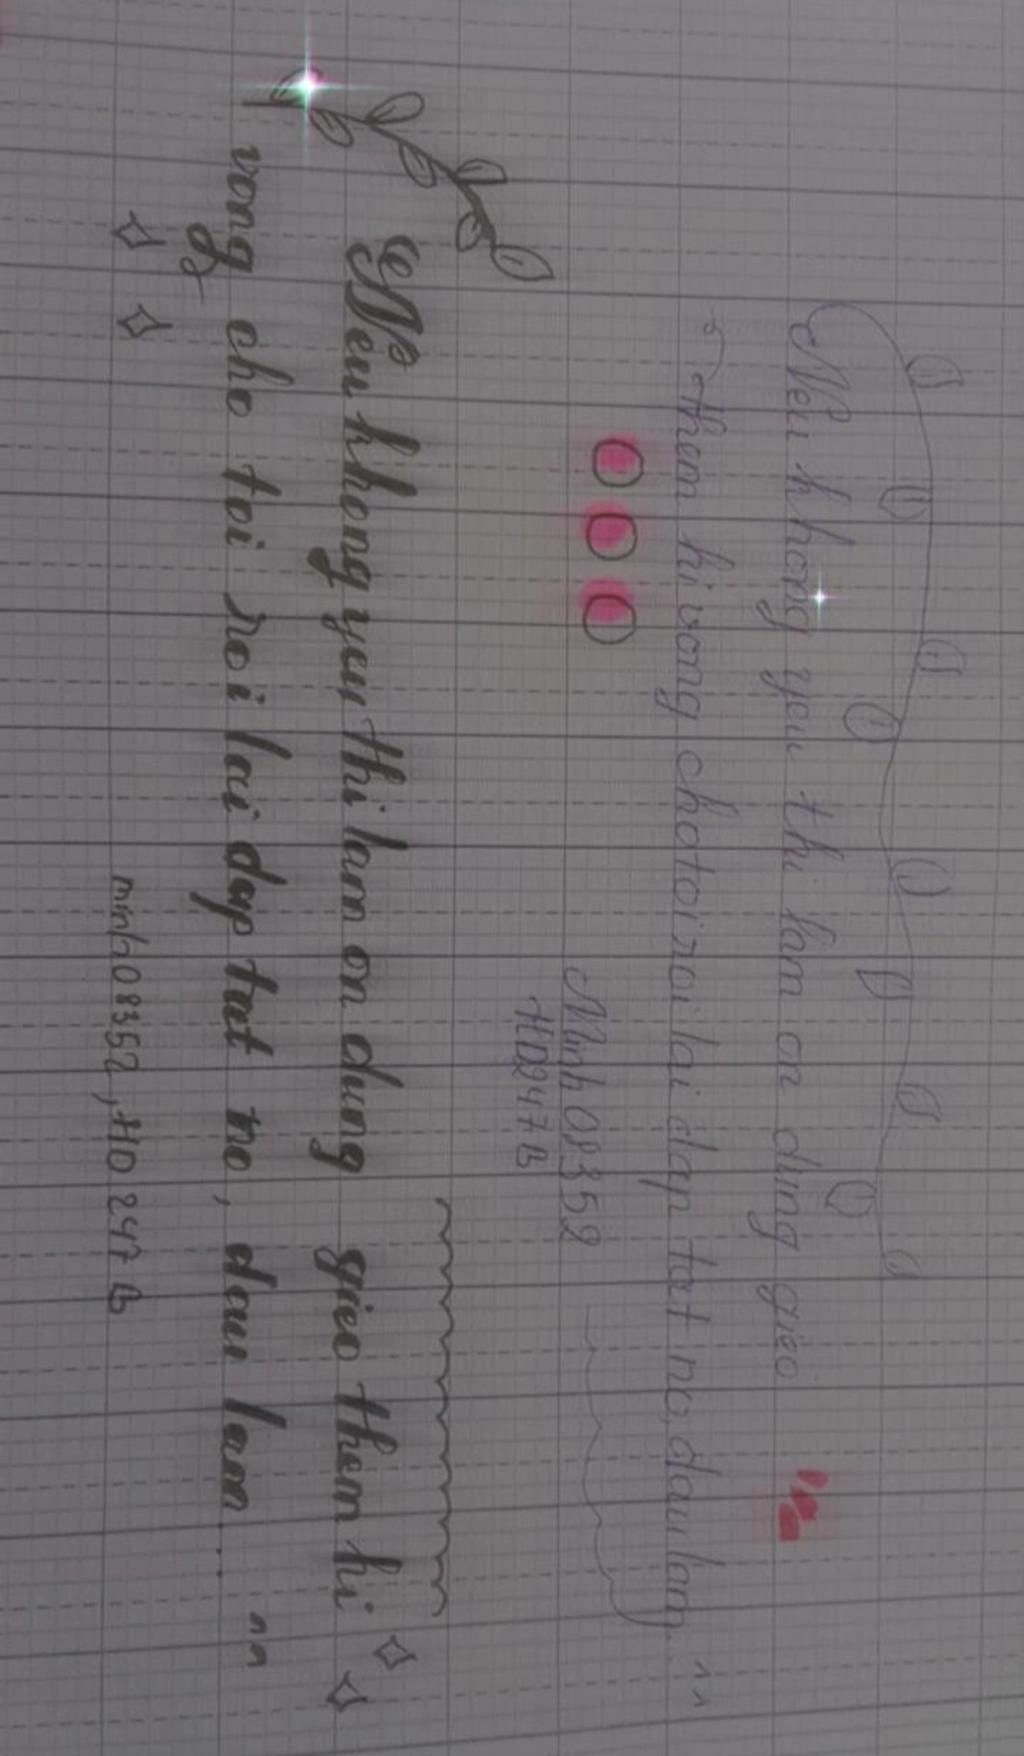 Neu khong yeu thi lam on dung gieo
them hi vong cho toi roi lai dap tat no, dau lam ^^
Minh08352
HD247B
Neu khong yeu thi lam on dung gieo them hi
vong cho toi roi lai dap tat no, dau lam... ^^
minh08352, HD247B